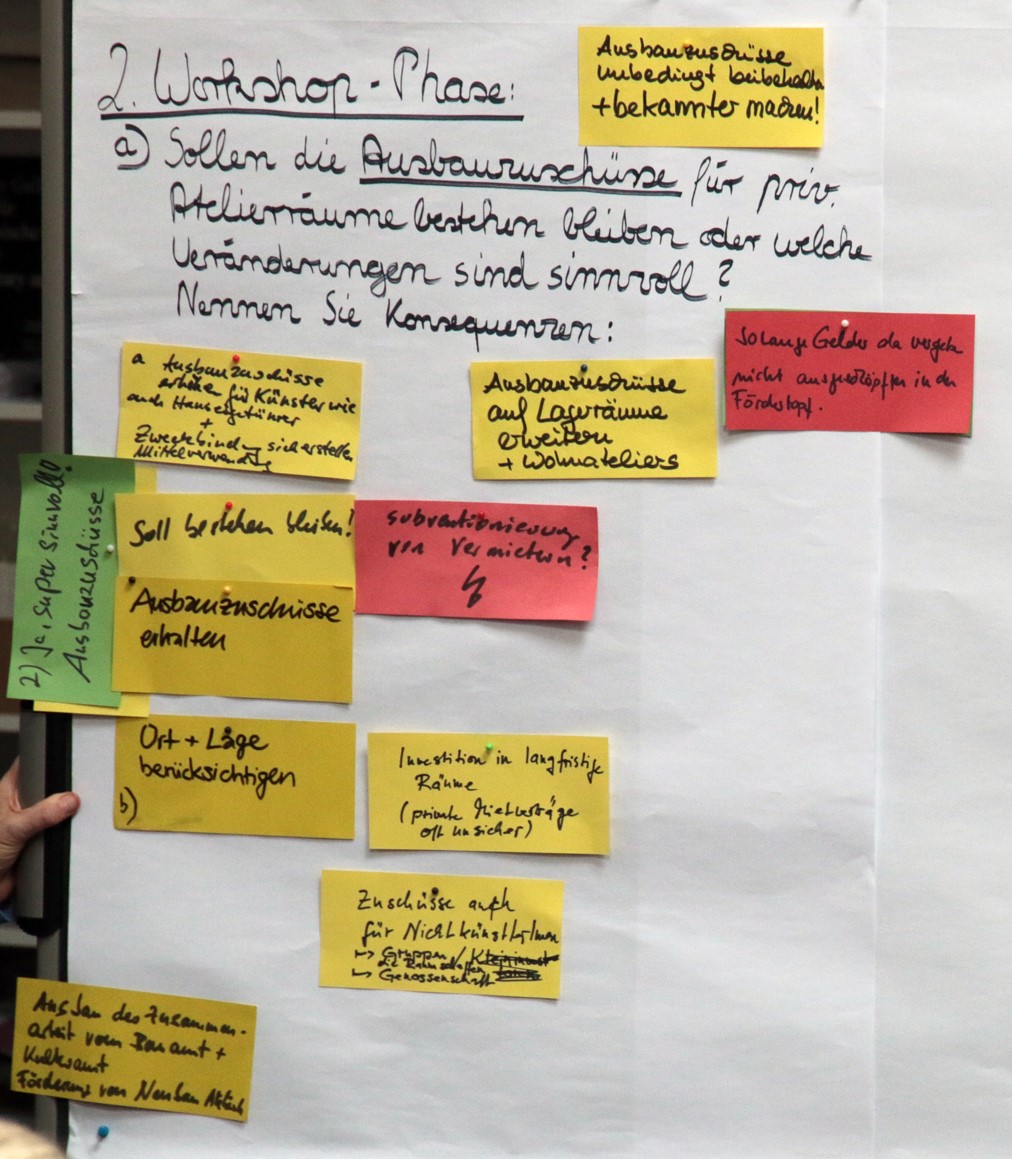 2. Workshop-Phase:
Ausbauzuschüsse
unbedingt beibehalten
+ bekannter machen!
a) Sollen die Ausbauzuschüsse für priv.
Atelierräume bestehen bleiben oder welche
Veränderungen sind sinnvoll?
Nennen Sie Konsequenzen:
solange Gelder da
nicht in den
Fördertopf.
a Ausbauzuschüsse
für Künster wie
auch Hauseigentümer
+
Zweckbindung sicherstellen
Mittelverwendung
Ausbauzuschüsse
auf Lagerräume
erweitern
+ Wohnateliers
2) Ja, super sinnvoll!
Ausbauzuschüsse
Soll bestehen bleiben!
Subventionierung
von Vermietern?
Ausbauzuschüsse
erhalten
Ort + Lage
berücksichtigen
b)
Investition in langfristige
Räume
(private Mietverträge
oft unsicher)
Zuschüsse auch
für NichtkünstlerInnen
↳ Gruppen /
die Raum schaffen
↳ Genossenschaft
Ausbau der Zusammen-
arbeit vom Bauamt +
Kulturamt
Förderung von Neubau